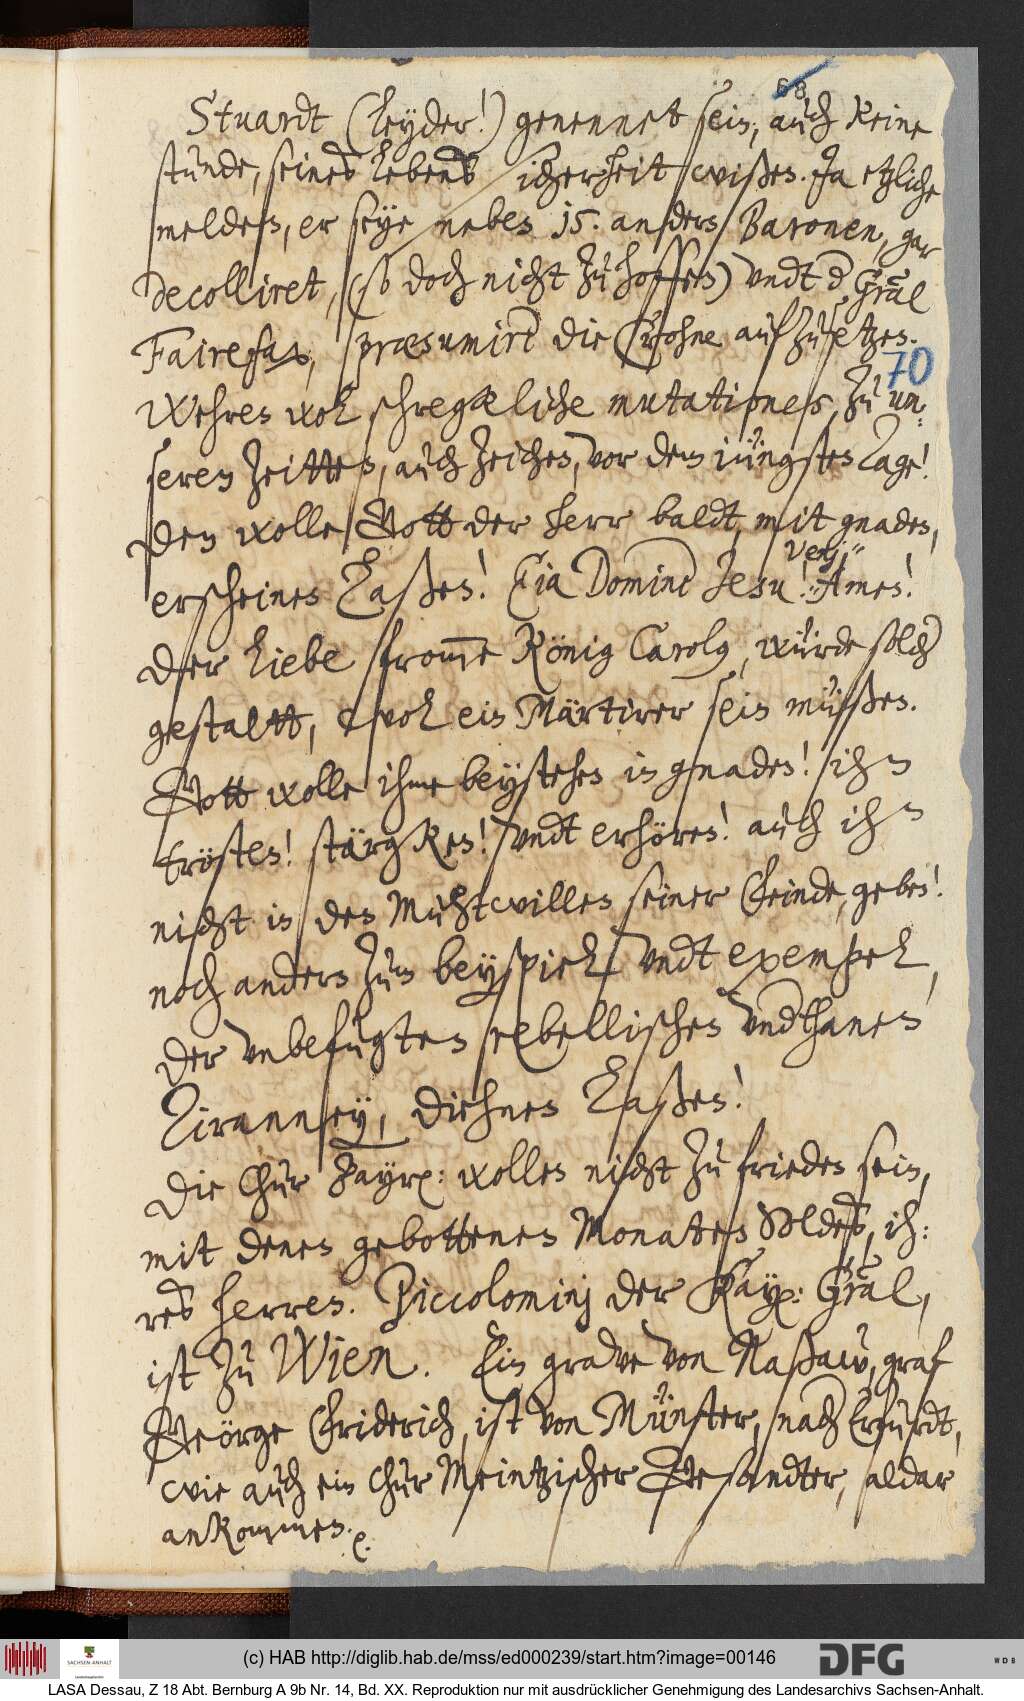 68
Stuardt (leyder!) genennet sein, auch keine
stunde, seines lebens sicherheit wißen. Ja etzliche
melden, er seye neben 15. andern Baronen, gar
decolliret, (so doch nicht zu hoffen) undt der Gral
Fairefax, præsumirt die Crohne aufzusetzen.
70
Wehren wol schregkliche mutationes, zu un-
seren Zeitten, auch Zeichen, vor dem iüngsten Tage!
Den wolle Gott der herr baldt, mit gnaden,
erscheinen laßen! Eia Domine Jesu! Veni, Amen!
Der liebe fromme König Carolus, würde solch
gestaltt, wol ein Märtirer sein müßen.
Gott wolle ihme beystehen in gnaden! ihn
trösten! stärgken! undt erhören! auch ihn
nicht in den Muhtwillen seiner feinde, geben!
noch andern zum beyspiel undt exempel,
der unbefugten rebellischen Undthanen
Tiranney, diehnen laßen!
Die ChurBayr: wollen nicht zu frieden sein,
mit denen gebottenen Monaten Soldes, ih:
res herren. Piccolominj der Kay: Gral,
ist zu Wien. Ein grave von Naßaw, graf
Geörge Friderich, ist von Münster, nach Erfurdt,
wie auch ein ChurMeintzischer Gesandter, aldar
ankommen.
(c) HAB http://diglib.hab.de/mss/ed000239/start.htm?image=00146
SACHSEN-ANHALT
DFG
WDB
LASA Dessau, Z 18 Abt. Bernburg A 9b Nr. 14, Bd. XX. Reproduktion nur mit ausdrücklicher Genehmigung des Landesarchivs Sachsen-Anhalt.